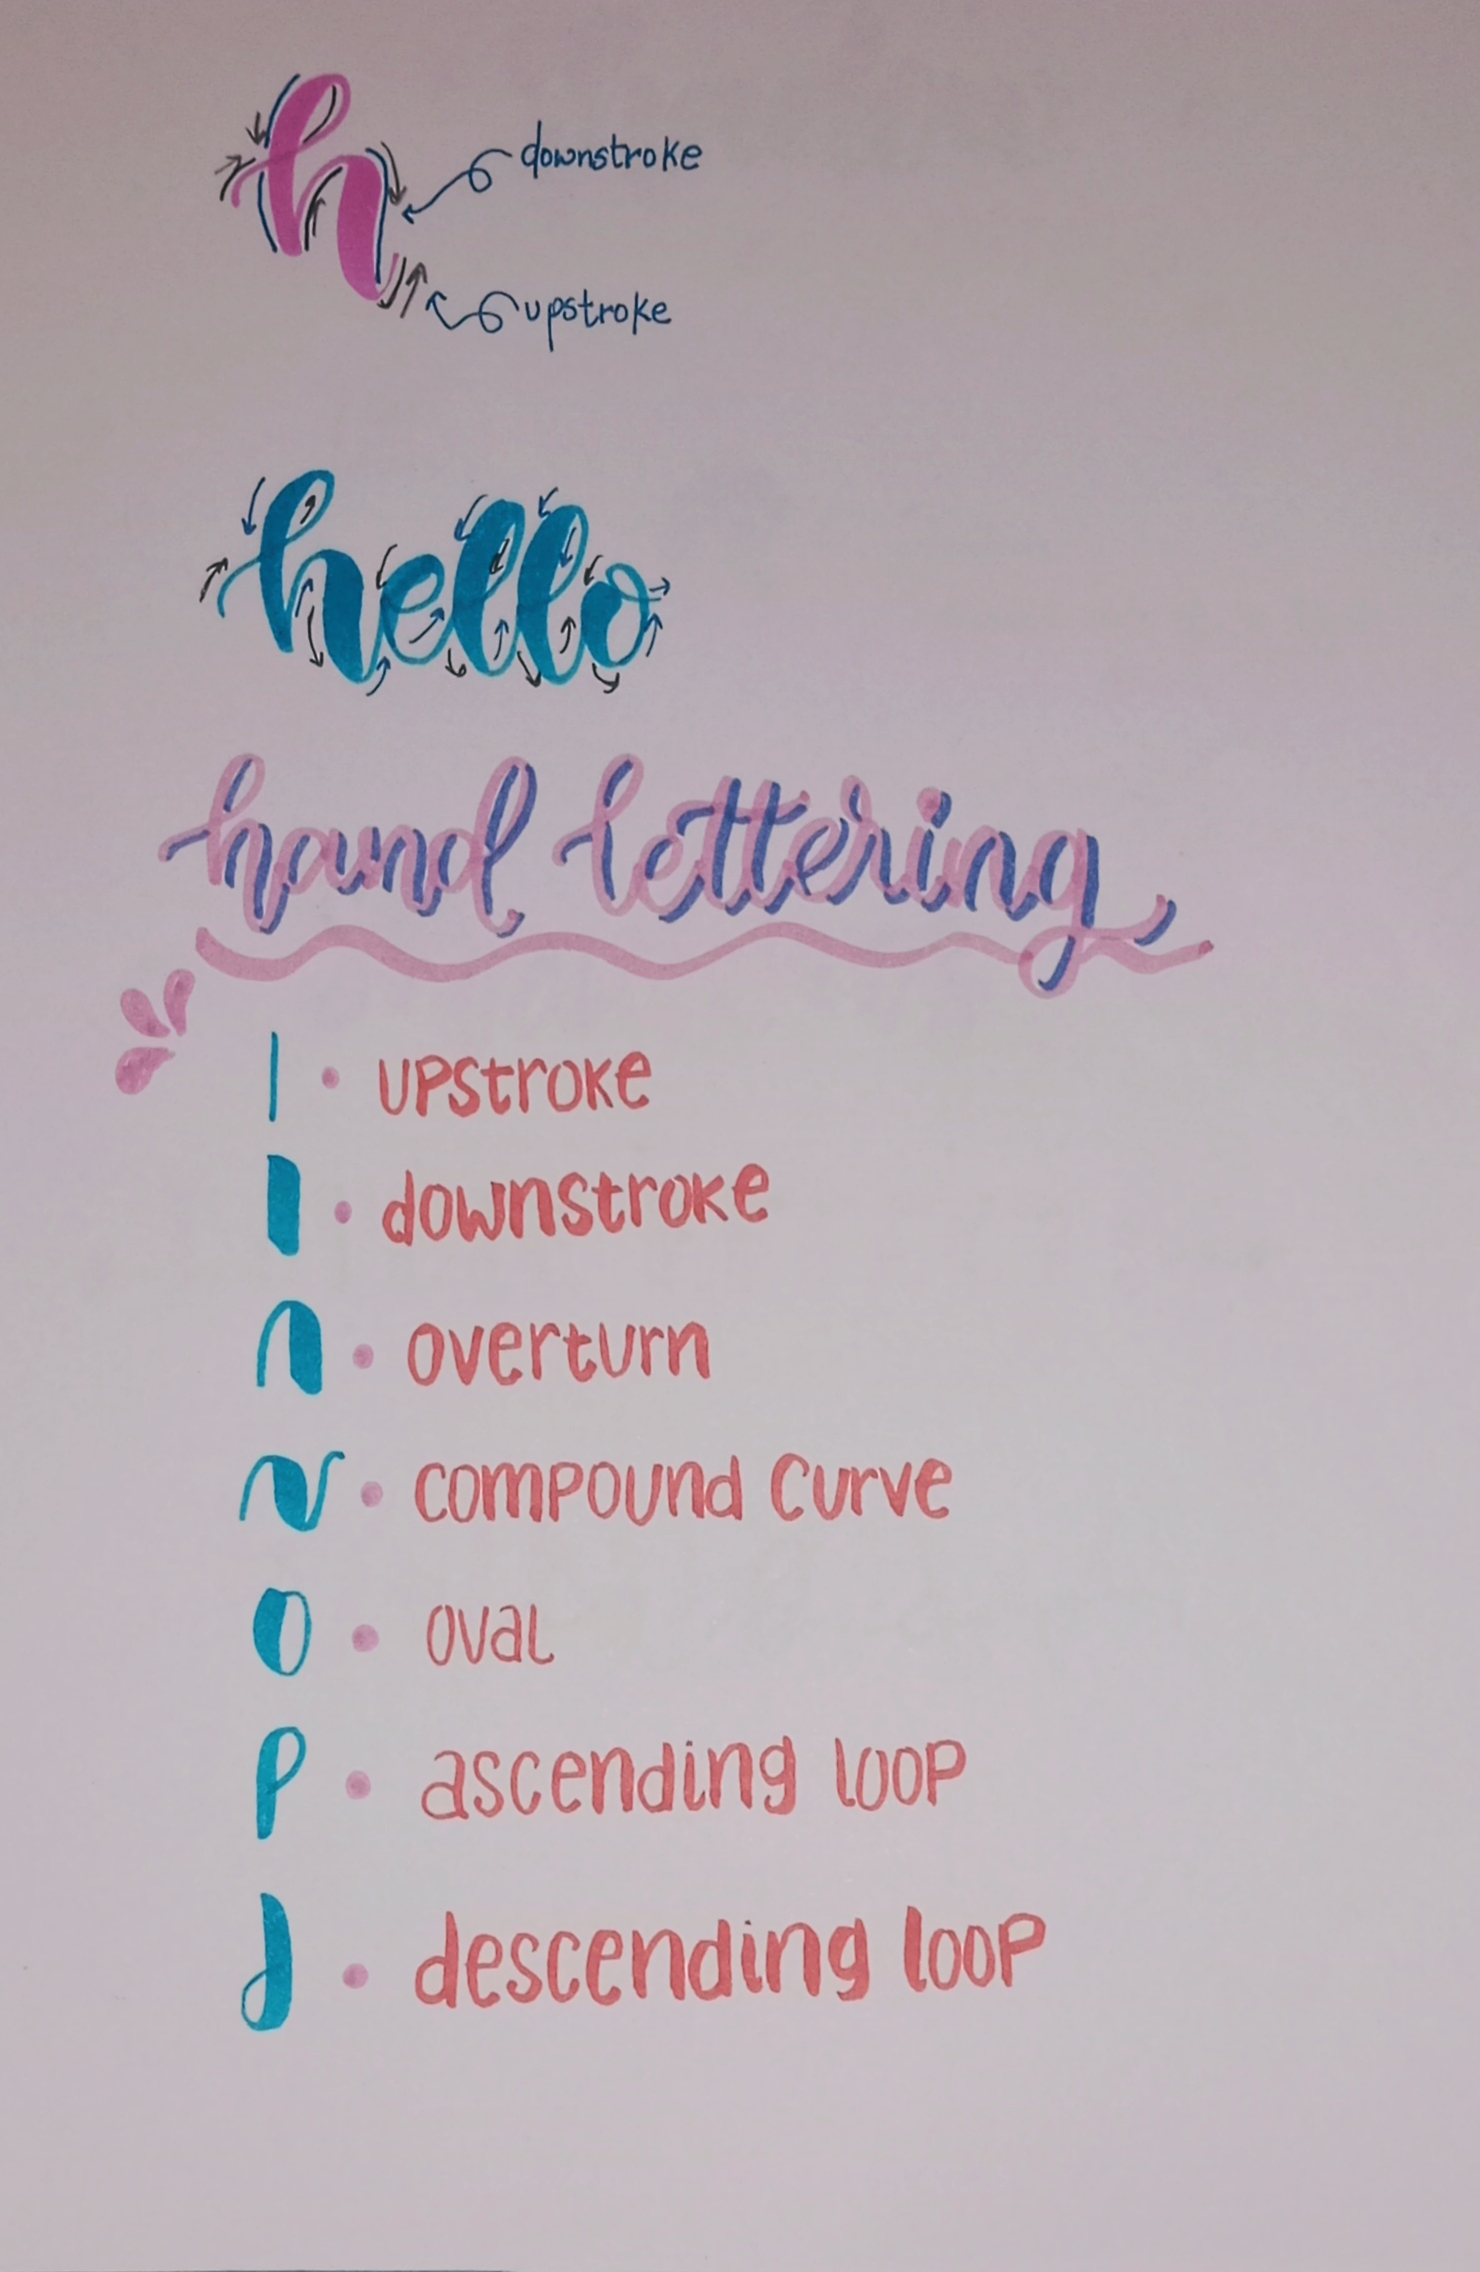 h
downstroke
upstroke
hello
hand lettering
upstroke
downstroke
overturn
compound curve
oval
ascending loop
descending loop